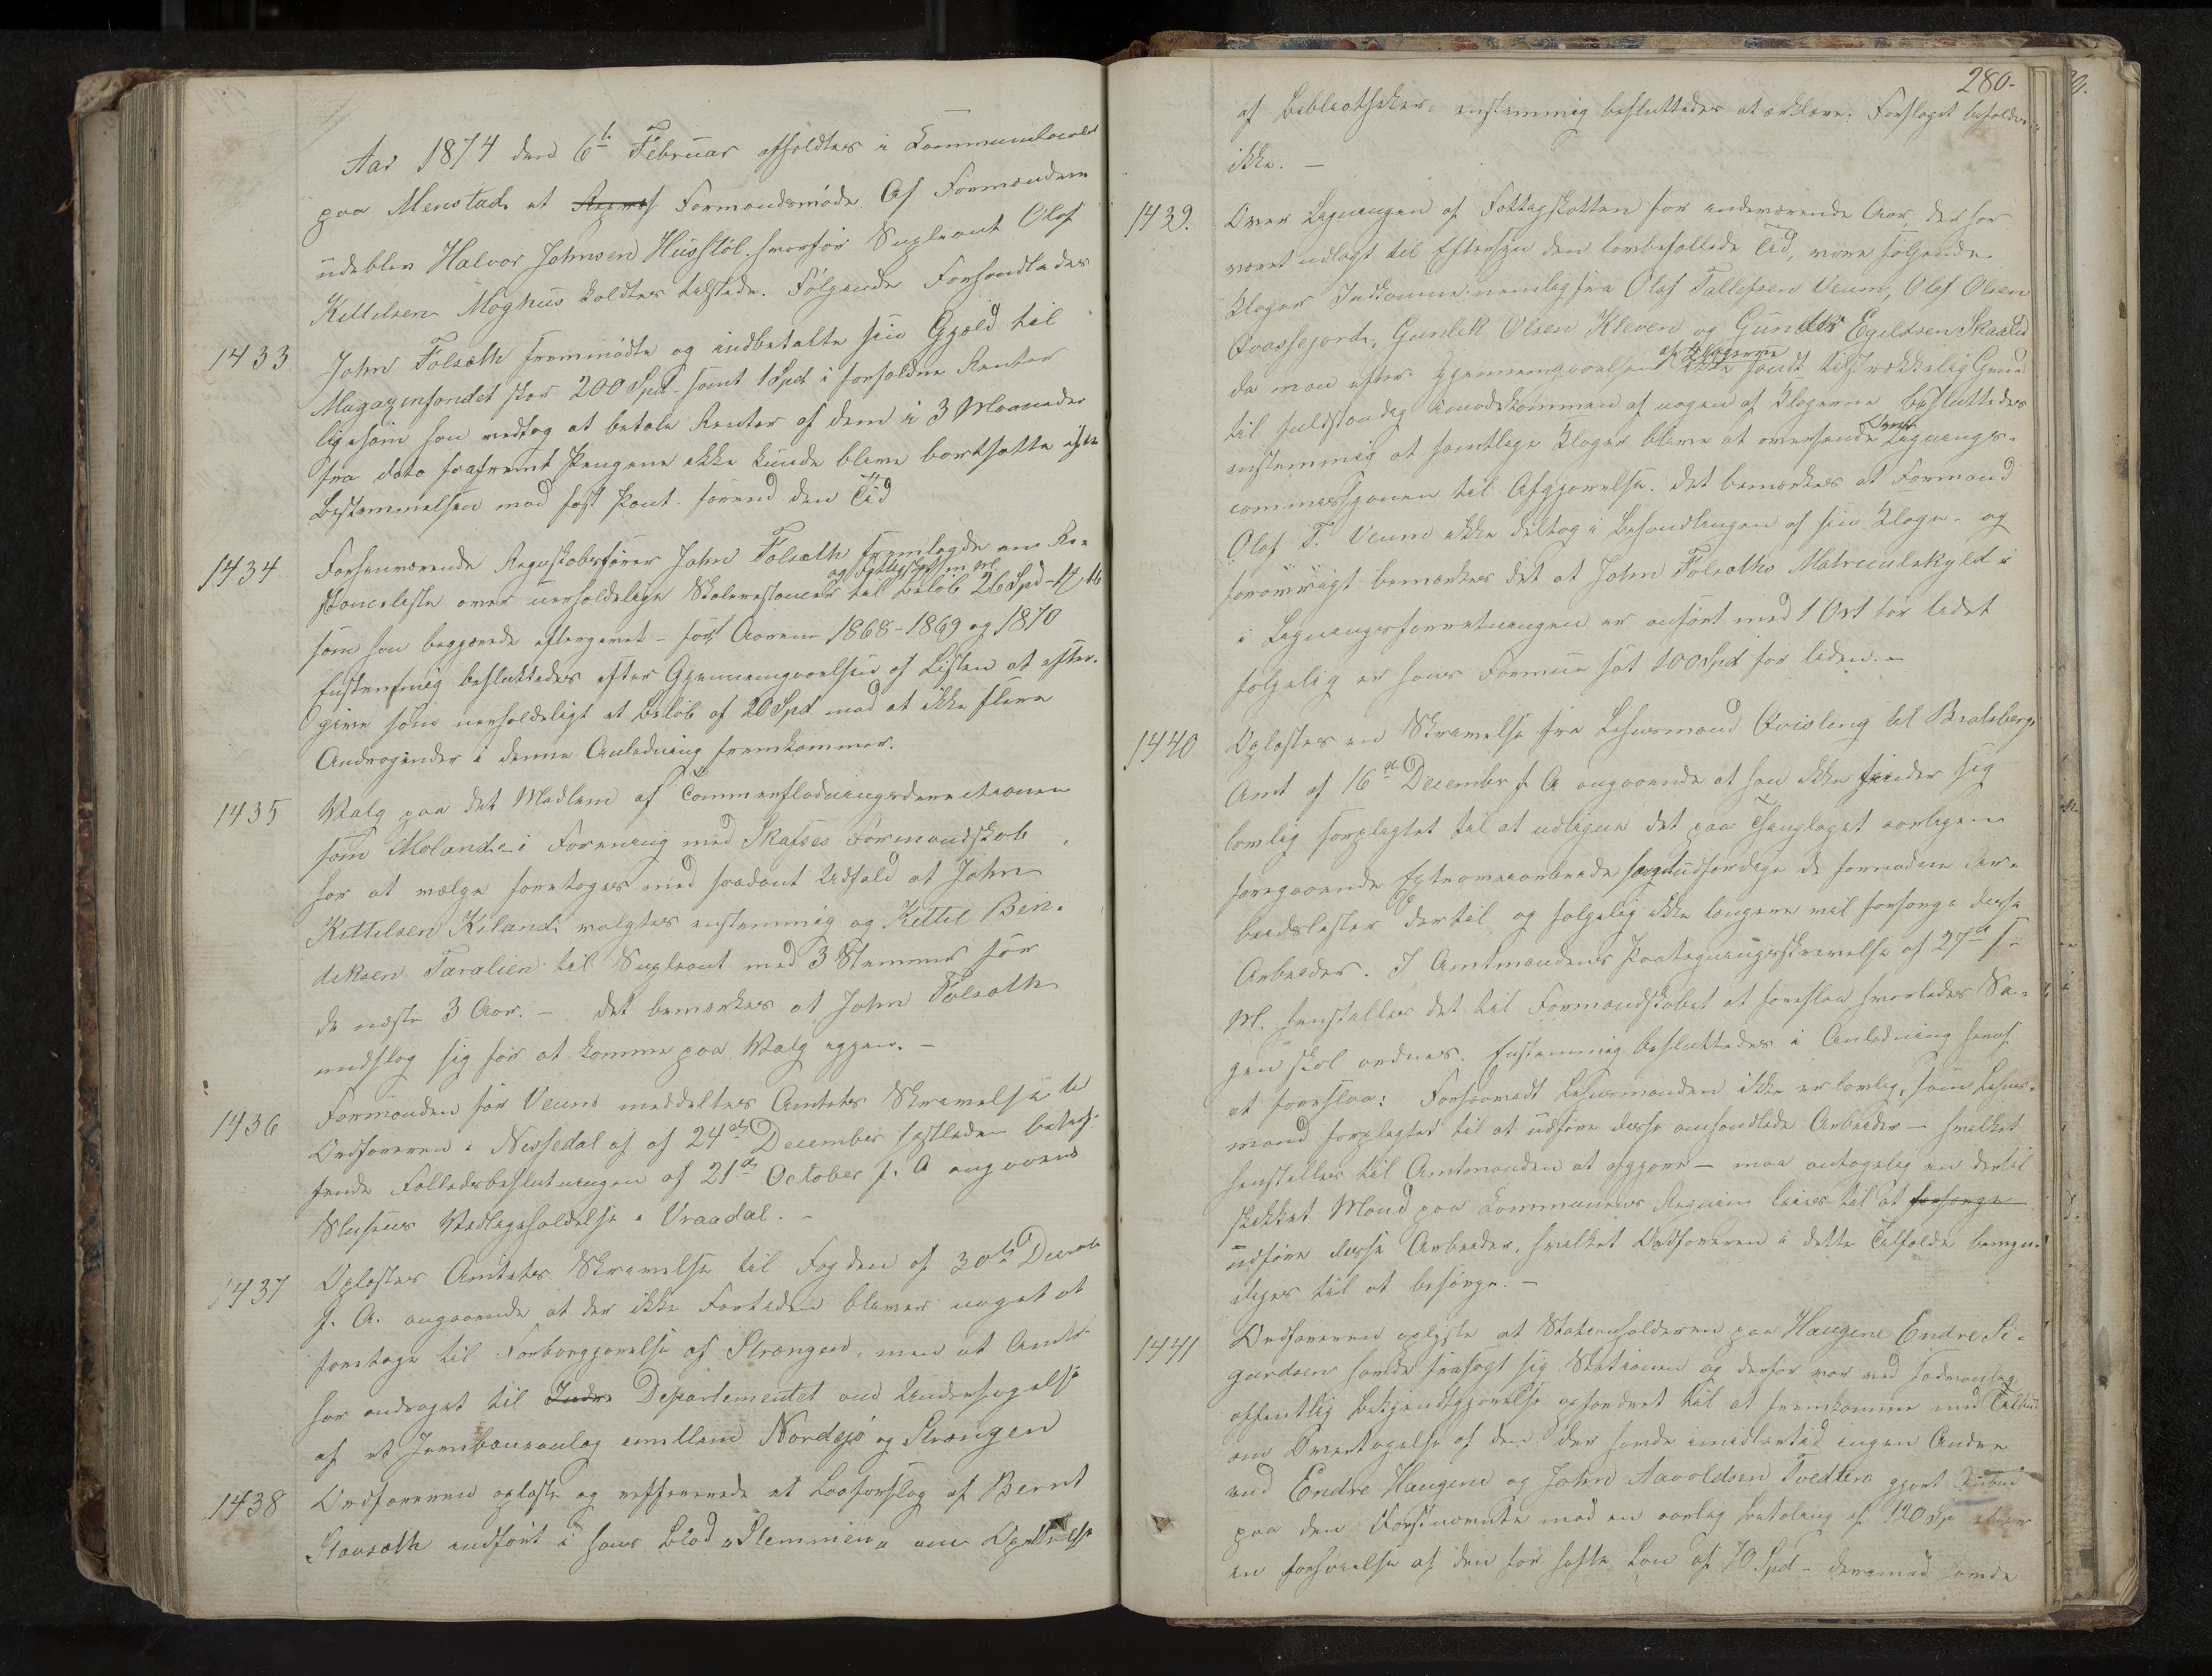 Aar 1874 den 6te Februar afholdtes i Kommunelocalet
paa Menstad et Formandsmøde. Af Formændene
udeblev Halvor Johnsen Husstøl hvorfor Supleant Olaf
Kittilsen Moghus holdtes tilstede. Følgende Forhandledes
1433 John Folsæth fremmødte og indbetalte sin Gjæld til
Magazinfondet stor 200 Spd. samt 1 Spd i forfaldne Renter
ligesom han vedtog at betale Renter af dem i 3 Maaneder
fra dato saafremt Pengene ikke kunde blive bortsatte efter
Bestemmelsen mod fast Pant forend den Tid
1434 Forhenværende Regnskabsfører John Folsæth fremlagde en Re-
stanceliste over uerholdelige Skolerestancer til Beløb 26 Spd - 14
som han begjærede eftergivet - for Aarene 1868-1869 og 1870
Enstemmig besluttedes efter Gjennemgaaelsen af Listen at efter-
give som uerholdeligt et Beløb af 20 Spd. mod at ikke flere
Andragender i denne Anledning fremkommer.
1435 Valg paa det Medlem af Tømmerflødningsdirectionen
som Moland i Forening med Skafses Formandskab
har at vælge foretoges med saadant Udfald at John
Kittilsen Kiland valgtes enstemmig og Kittil Ben-
diksen Taralien til Supleant med 3 Stemmer for
de næste 3 Aar. - Det bemærkes at John Folsæth
undslog sig for at komme paa Valg iggjen. -
1436 Formanden for Veum meddeltes Amtets Skrivelse til
Ordføreren i Nissedal af 24de December sistleden betref-
fende Fælledsbeslutningen af 21de October f. A angaaende
Slusens Vedligeholdelse i Vraadal. -
1437 Oplæstes Amtets Skrivelse til Fogden af 30te Decemb
f. A. angaaende at der ikke Fortiden bliver noget at
foretage til Farbargjørelse af Strængen, men at Amtet
har andraget til Indre Departementet om Undersøgelse
af et Jernbaneanlæg imellem Nordsjø og Strengen
1438 Ordføreren oplæste og refererede et Lovforslag af Bernt
Stavsæth indført i hans Blad „Stemmen" om Oprettelse
280.
af Bibliotheker. enstemmig besluttedes at erklære: Forslaget befoldes
ikke. -
1439. Over Ligningen af Fattigskatten for indeværende Aar, der har
været udlagt til Eftersyn den lovbefallede Tid, vare følgende
Klager Indkomne: nemlig fra Olaf Tallefsen Veum, Olaf Olsen
Qvassejord, Gunlek Olsen Kleven og Gunder Egildsen Skaalid
da man efter Gjennemgaaelsen af Klagerne ikke fandt tilstrækkelig Grund
til fuldstændig imødekommen af nogen af Klagerne besluttedes
enstemmig at samtlige Klager blive at oversende Lignings-
commissionen til Afgjørelse. Det bemærkes at Formand
Olaf T. Veum ikke deltog i Behandlingen af sin Klage - og
forøvrigt bemærkes det at John Folsæths Matriculskyld i
i Ligningsforretningen er anført med 1 Ort for lidet
følgelig er hans Formue sat 100 Spd for liden. -
1440 Oplæstes en Skrivelse fra Lehnsmand Qvisling til Bratsberg
Amt af 16de December f A angaaende at han ikke finder sig
lovlig forpligtet til at udligne det paa Thinglaget aarligen
foregaaende Extraveiarbeide samt udfærdige de fornødne Ar-
beidslister dertil og følgelig ikke længere vil forsørge disse
Arbeider. I Amtmandens Paategningsskrivelse af 27de s.
M. henstilles det til Formandskabet at foreslaa hvorledes Sa-
gen skal ordnes. Enstemmig besluttedes i Anledning heraf
at foreslaa: Forsaavidt Lehnsmanden ikke er lovlig, som Lehns-
mand forpligtet til at udføre disse omhandlede Arbeider - hvilket
henstilles til Amtmanden at afgjøre - maa antagelig en dertil
skikket Mand paa Kommunens Regning leies til at forsørge
udføre disse Arbeider, hvilket Ordføreren i dette Tilfælde bemyn-
diges til at besørge. -
1441 Ordføreren oplyste at Stationholderen paa Haugene Endre Si-
gurdsen havde frasagt sig Stationen og derfor var ved sædvanlig
offentlig Bekjendtgjørelse opfordret til at fremkomme med Tilbud
om Overtagelse af den. Der havde imidlertid ingen Andre
end Endre Haugene og John Aavoldsen Tvedten gjort Anbud
paa den Førstnævnte mod en aarlig Betaling af 120 Spd
en forhøielse af den før hafte Løn af 70 Spd - derimod havde